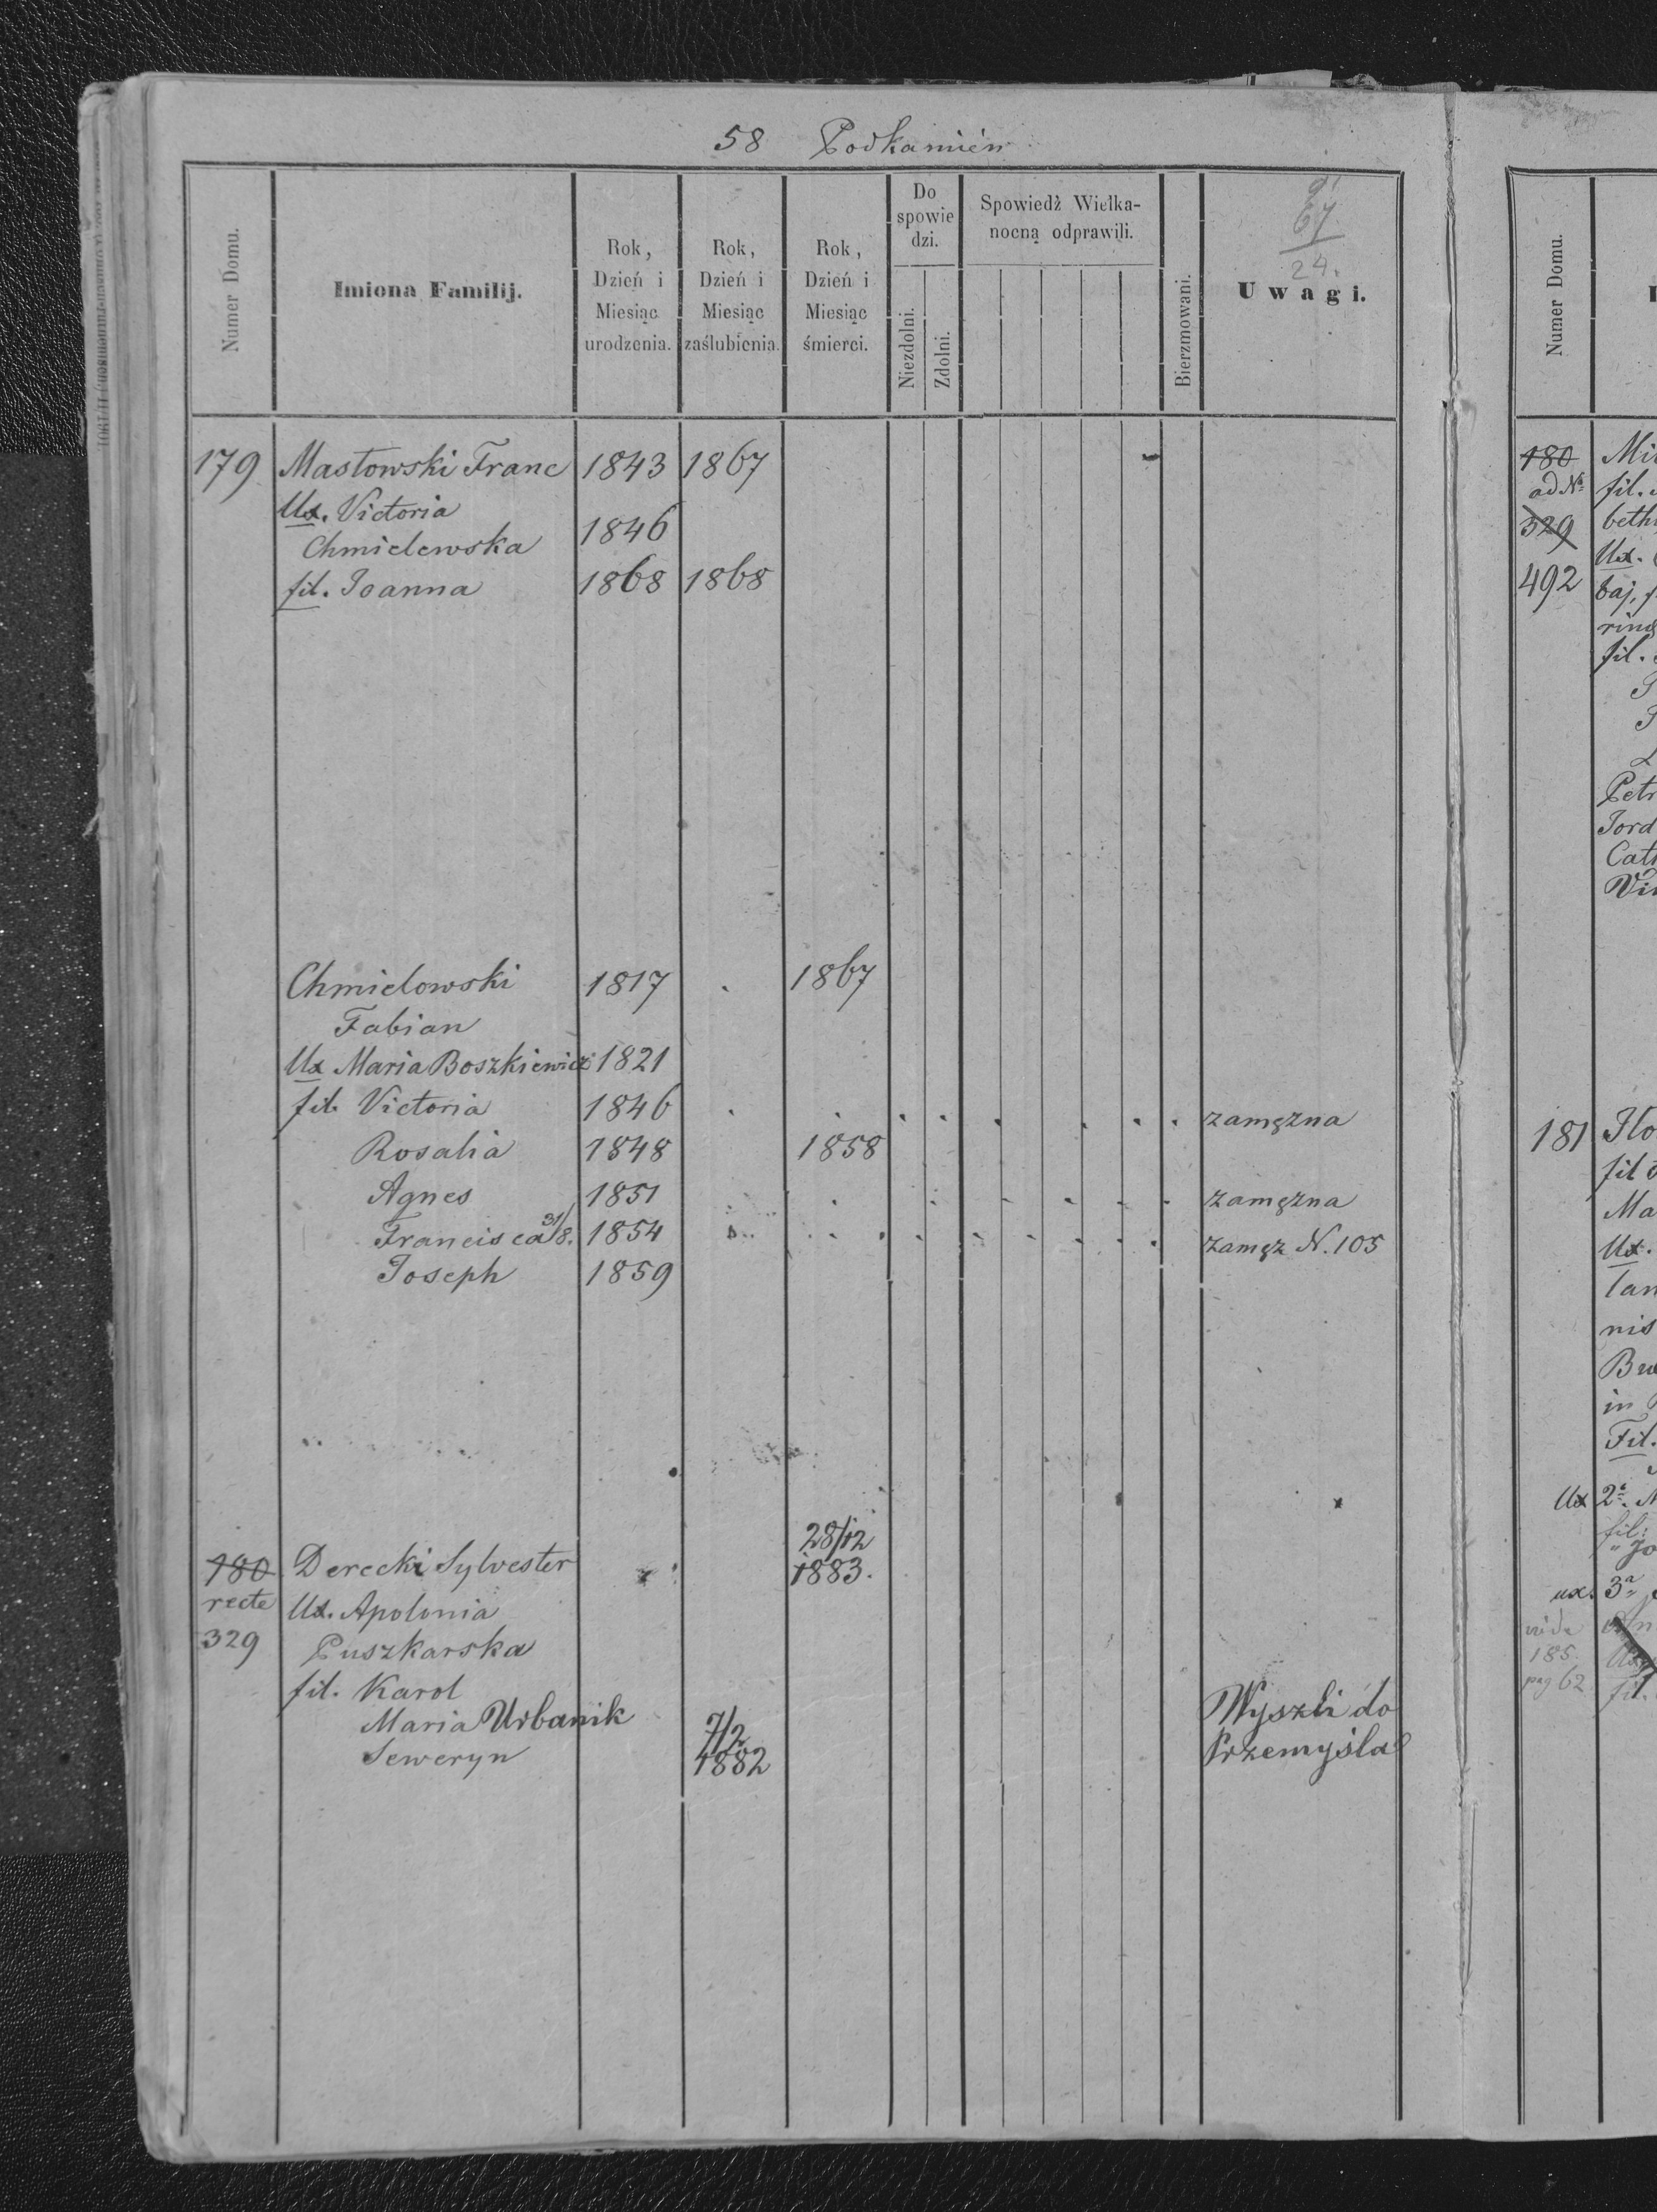 58 Podkamień
Numer Domu.
Imiona Familij.
Rok, Dzień i Miesiąc urodzenia.
Rok, Dzień i Miesiąc zaślubienia.
Rok, Dzień i Miesiąc śmierci.
Do spowiedzi.
Niezdolni.
Zdolni.
Spowiedź Wielkanocną odprawili.
Bierzmowani.
67
24.
Uwagi.
179 Masłowski Franc 1843 1867
Ux. Victoria
Chmielewska 1846
fil. Joanna 1868 1868
Chmielowski 1817 1867
Fabian
Ux Maria Boszkiewicz 1821
fil. Victoria 1846 zamężna
Rosalia 1848 1858
Agnes 1851 zamężna
Francisca 31/8. 1854 zamęż N. 105
Joseph 1859
28/12
180 Derecki Sylvester 1883.
recte Ux. Apolonia
329 Puszkarska
fil. Karol
Maria Urbanik 7/2 Wyszli do
Seweryn 1882 Przemyśla
Numer Domu.
180
ad N°
329
492
fil.
Ux.
fil.
Petr
Jord
Cath
181
fil
Ma
Ux.
nis
in
Fil.
Ux 2ª.
fil:
ux. 3ª
vide
185.
pag 62